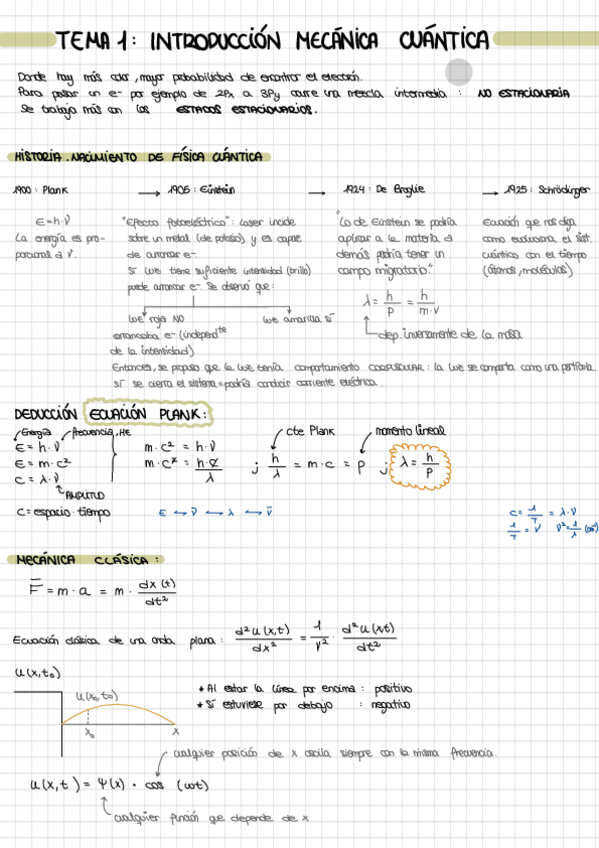 TEMA 1: INTRODUCCIÓN MECÁNICA CUÁNTICA
Donde hay más color, mayor probabilidad de encontrar el electrón.
Para pasar un e- por ejemplo de 2Px a 3Py ocurre una mezcla intermedia : NO ESTACIONARIA
Se trabaja más con los ESTADOS ESTACIONARIOS.
HISTORIA. NACIMIENTO DE FÍSICA CUÁNTICA
1900: Plank → 1905: Einstein → 1924: De Broglie → 1925: Schrödinger
E = h·ν
La energía es pro-
porcional a ν.
"Efecto fotoeléctrico": Láser incide
sobre un metal (de potasio) y es capaz
de arrancar e-
Si luz tiene suficiente intensidad (brillo)
puede arrancar e-. Se observó que:
luz roja NO
arrancaba e- (independte
de la intensidad)
luz amarilla sí
Entonces, se propuso que la luz tenía comportamiento CORPUSCULAR: la luz se comporta como una partícula.
sí se cierra el sistema = podría conducir corriente eléctrica.
"Lo de Einstein se podría
aplicar a la materia e
demás podría tener un
campo migratorio."
λ = h/p = h/m·v
dep. inversamente de la masa
Ecuación que nos diga
como evoluciona el sist.
cuántico con el tiempo
(átomos, moléculas)
DEDUCCIÓN ECUACIÓN PLANK:
Energía frecuencia, Hz
E = h·ν
E = m·c²
c = λ·ν
AMPLITUD
c = espacio · tiempo
m·c² = h·ν
m·c² = h·c/λ
; h/λ = m·c = p ; λ = h/p
cte Plank
momento lineal
E ↔ ν ↔ λ ↔ ν̄
c = 1/T = λ·ν
1/T = ν
MECÁNICA CLÁSICA:
F = m·a = m · dx(t)/dt²
Ecuación clásica de una onda plana: d²u(x,t)/dx² = 1/v² · d²u(x,t)/dt²
u(x,t₀)
u(x₀,t₀)
x₀ x
* Al estar la línea por encima : positivo
* Sí estuviese por debajo : negativo
cualquier posición de x oscila siempre con la misma frecuencia.
u(x,t) = Ψ(x) · cos (ωt)
cualquier función que depende de x